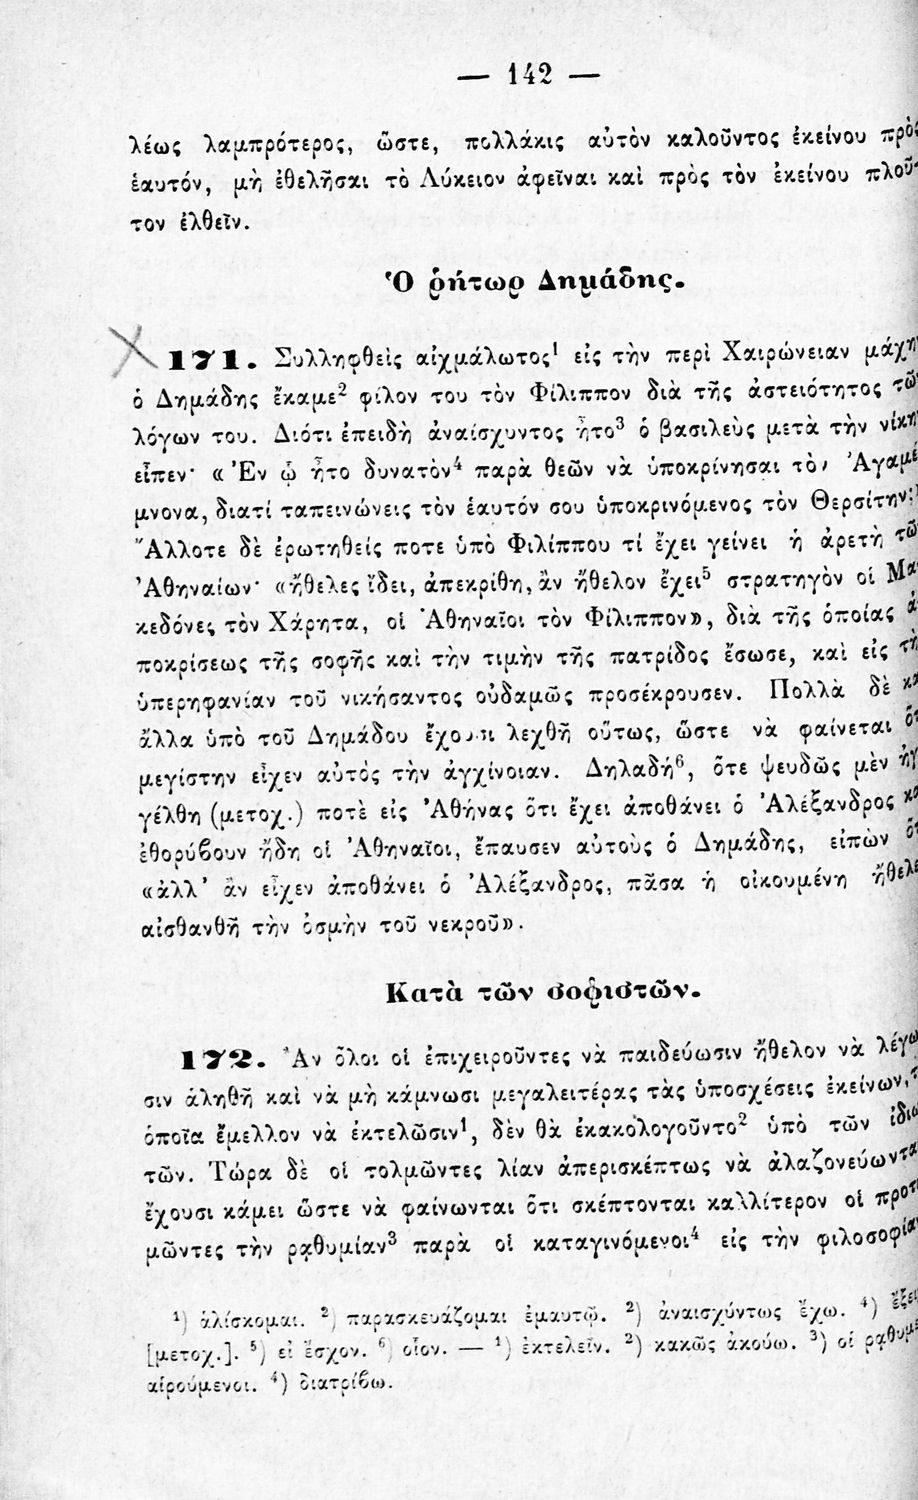 — 142 —
λέως λαμπρότερος, ὥστε, πολλάκις αὐτὸν καλοῦντος ἐκείνου πρὸς
ἑαυτόν, μὴ ἐθελῆσαι τὸ Λύκειον ἀφεῖναι καὶ πρὸς τὸν ἐκείνου πλοῦ-
τον ἐλθεῖν.
Ὁ ῥήτωρ Δημάδης.
171. Συλληφθεὶς αἰχμάλωτος¹ εἰς τὴν περὶ Χαιρώνειαν μάχην
ὁ Δημάδης ἔκαμε² φίλον του τὸν Φίλιππον διὰ τῆς ἀστειότητος τῶν
λόγων του. Διότι ἐπειδὴ ἀναίσχυντος ἦτο³ ὁ βασιλεὺς μετὰ τὴν νίκην
εἶπεν· «Ἐν ᾧ ἦτο δυνατὸν⁴ παρὰ θεῶν νὰ ὑποκρίνησαι τὸν Ἀγαμέ
μνονα, διατί ταπεινώνεις τὸν ἑαυτόν σου ὑποκρινόμενος τὸν Θερσίτην;»
Ἄλλοτε δὲ ἐρωτηθείς ποτε ὑπὸ Φιλίππου τί ἔχει γείνει ἡ ἀρετὴ τῶν
Ἀθηναίων· «ἤθελες ἴδει, ἀπεκρίθη, ἂν ἤθελον ἔχει⁵ στρατηγὸν οἱ Μα
κεδόνες τὸν Χάρητα, οἱ Ἀθηναῖοι τὸν Φίλιππον», διὰ τῆς ὁποίας ἀ
ποκρίσεως τῆς σοφῆς καὶ τὴν τιμὴν τῆς πατρίδος ἔσωσε, καὶ εἰς τὴ
ὑπερηφανίαν τοῦ νικήσαντος οὐδαμῶς προσέκρουσεν. Πολλὰ δὲ κα
ἄλλα ὑπὸ τοῦ Δημάδου ἔχουσι λεχθῆ οὕτως, ὥστε νὰ φαίνεται ὅτ
μεγίστην εἶχεν αὐτὸς τὴν ἀγχίνοιαν. Δηλαδή⁶, ὅτε ψευδῶς μὲν ἠγ
γέλθη (μετοχ.) ποτὲ εἰς Ἀθήνας ὅτι ἔχει ἀποθάνει ὁ Ἀλέξανδρος κα
ἐθορύβουν ἤδη οἱ Ἀθηναῖοι, ἔπαυσεν αὐτοὺς ὁ Δημάδης, εἰπὼν ὅτ
«ἀλλ' ἂν εἶχεν ἀποθάνει ὁ Ἀλέξανδρος, πᾶσα ἡ οἰκουμένη ἤθελε
αἰσθανθῆ τὴν ὀσμὴν τοῦ νεκροῦ».
Κατὰ τῶν σοφιστῶν.
172. Ἂν ὅλοι οἱ ἐπιχειροῦντες νὰ παιδεύωσιν ἤθελον νὰ λέγω
σιν ἀληθῆ καὶ νὰ μὴ κάμνωσι μεγαλειτέρας τὰς ὑποσχέσεις ἐκείνων, τ
ὁποῖα ἔμελλον νὰ ἐκτελῶσιν¹, δὲν θὰ ἐκακολογοῦντο² ὑπὸ τῶν ἰδιω
τῶν. Τώρα δὲ οἱ τολμῶντες λίαν ἀπερισκέπτως νὰ ἀλαζονεύωνται
ἔχουσι κάμει ὥστε νὰ φαίνωνται ὅτι σκέπτονται καλλίτερον οἱ προτι
μῶντες τὴν ῥᾳθυμίαν³ παρὰ οἱ καταγινόμενοι⁴ εἰς τὴν φιλοσοφίαν
¹) ἁλίσκομαι. ²) παρασκευάζομαι ἐμαυτῷ. ²) ἀναισχύντως ἔχω. ⁴) ἔξει
[μετοχ.]. ⁵) εἰ ἔσχον. ⁶) οἷον. — ¹) ἐκτελεῖν. ²) κακῶς ἀκούω. ³) οἱ ῥᾳθυμε
αἱρούμενοι. ⁴) διατρίβω.